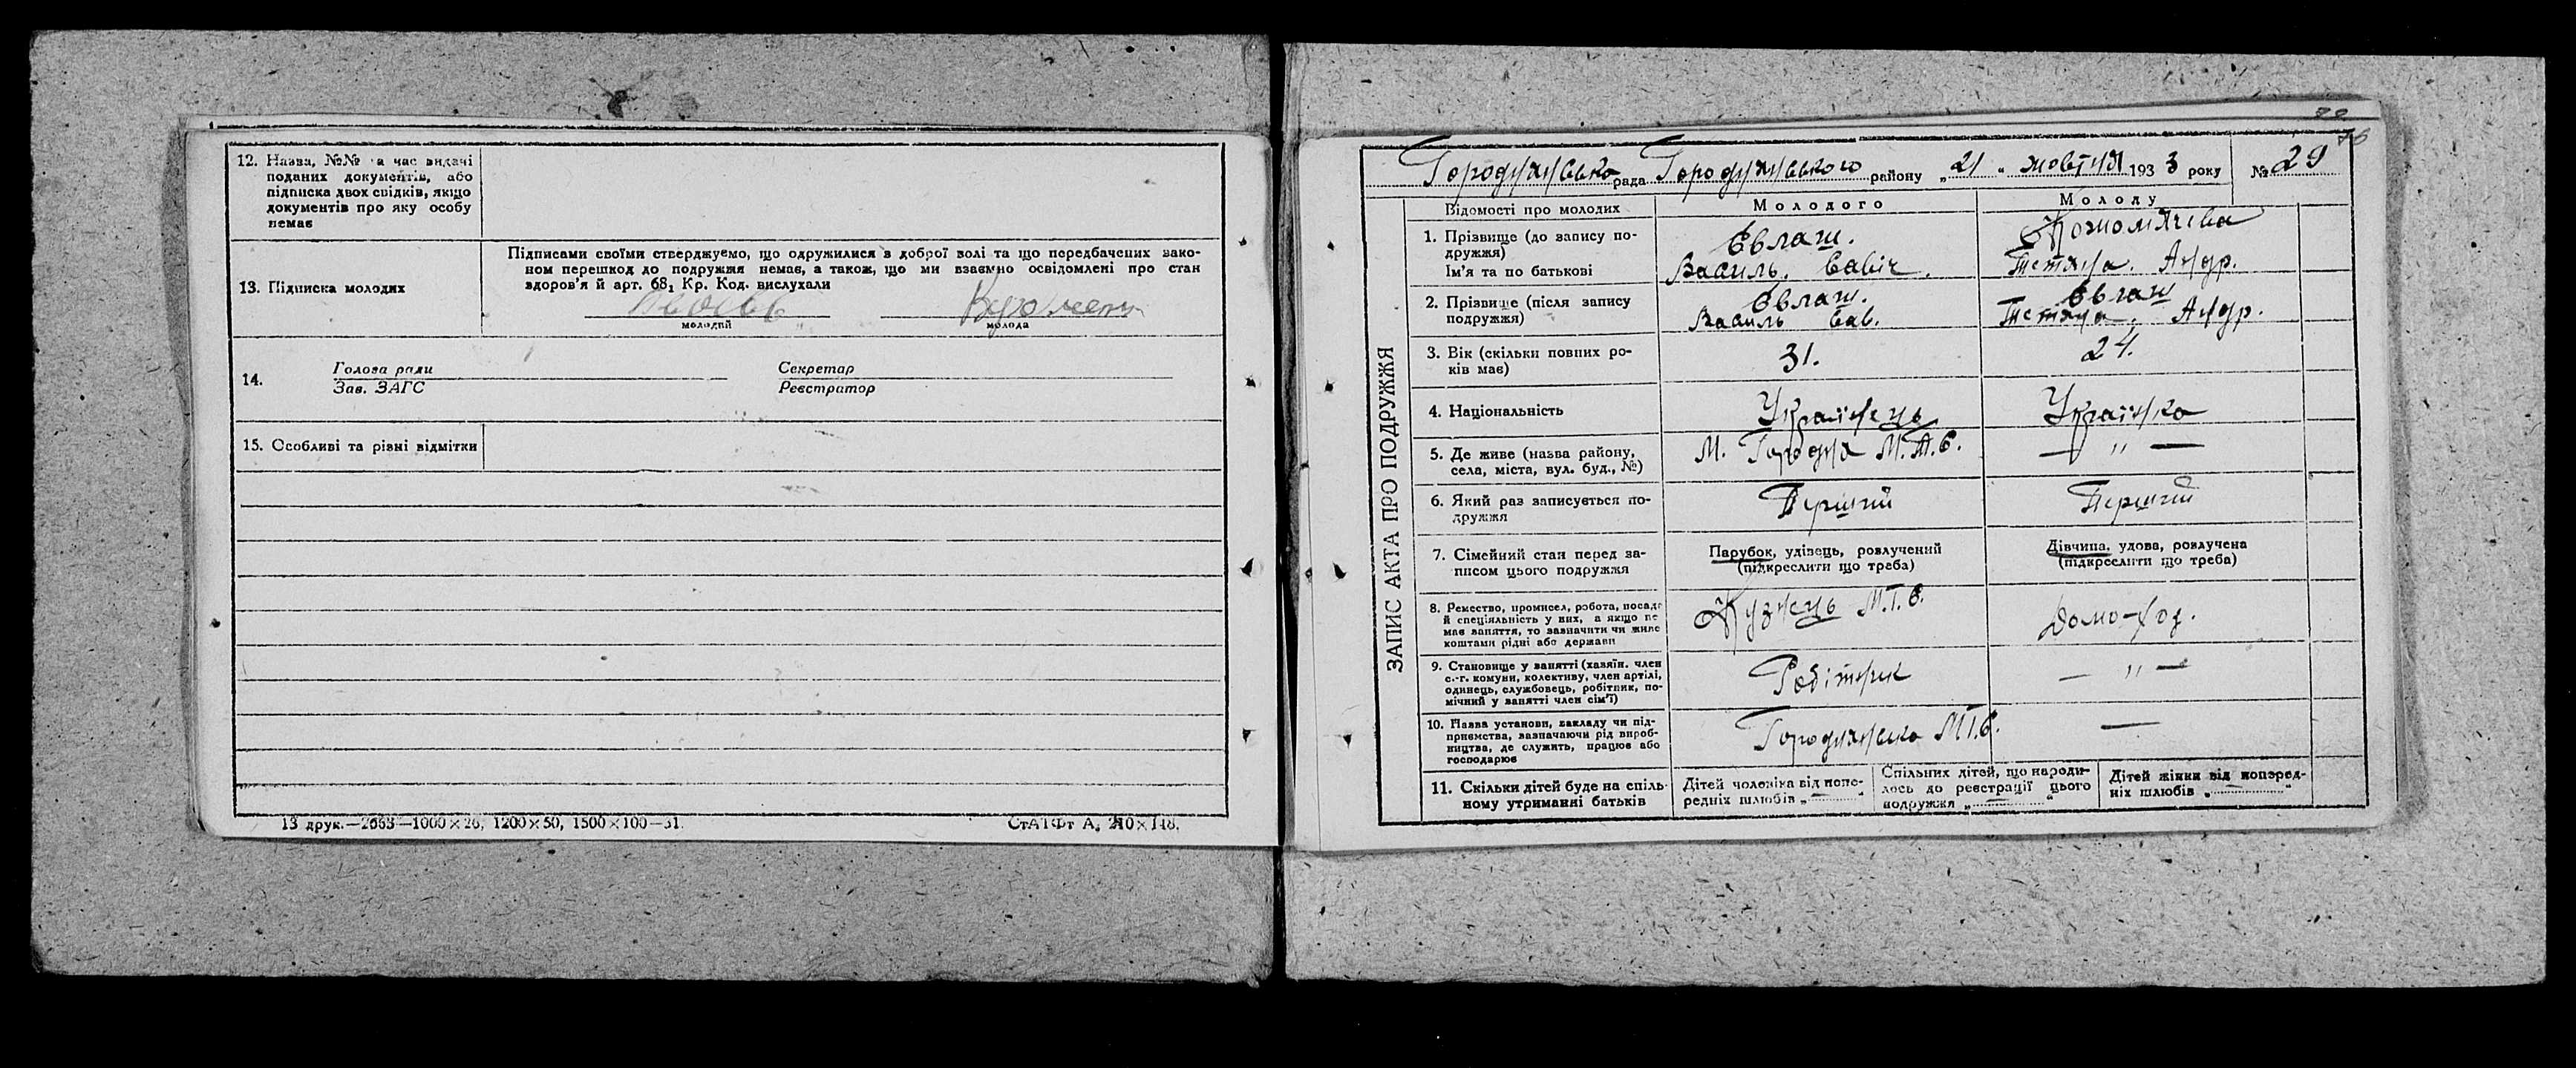 12. Назва, №№ та час видачі
поданих документів, або
підписка двох свідків, якщо
документів про яку особу
немає
13. Підписка молодих
Підписами своїми стверджуємо, що одружилися в доброї волі та що передбачених зако-
ном перешкод до подружжя немає, а також, що ми взаємно освідомлені про стан
здоров'я й арт. 68, Кр. Код. вислухали
молодий молода
14.
Голова ради Секретар
Зав. ЗАГС Реєстратор
15. Особливі та різні відмітки
13 друк.—2663—1000×26, 1200×50, 1500×100—31. СтАТФт А, 210×148.
ЗАПИС АКТА ПРО ПОДРУЖЖЯ
Городнянська рада Городнянського району „21" жовтня 1933 року № 29
Відомості про молодих Молодого Молоду
1. Прізвище (до запису по-
дружжя)
Ім'я та по батькові
Євлаш.
Василь. Савіч.
Тетяна. Андр.
2. Прізвище (після запису
подружжя)
Євлаш.
Василь Сав.
Євлаш
Тетяна. Андр.
3. Вік (скільки повних ро-
ків має)
31. 24.
4. Національність Українець Українка
5. Де живе (назва району,
села, міста, вул. буд., №)
М. Городня М.Т.С. — „ —
6. Який раз записується по-
дружжя
Перший Перший
7. Сімейний стан перед за-
писом цього подружжя
Парубок, удівець, розлучений
(підкреслити що треба)
Дівчина, удова, розлучена
(підкреслити що треба)
8. Ремество, промисел, робота, посада
й спеціяльність у них, а якщо не
має заняття, то зазначити чи живе
коштами рідні або держави
Кузнець М.Т.С. Домо-гоз.
9. Становище у занятті (хазяїн. член
с.-г. комуни, колективу, член артілі,
одинець, службовець, робітник, по-
мічний у занятті член сім'ї)
Робітник — „ —
10. Назва установи, закладу чи під-
приємства, зазначаючи рід вироб-
ництва, де служить, працює або
господарює
Городнянська МТС. —
11. Скільки дітей буде на спіль-
ному утриманні батьків
Дітей чоловіка від попе-
редніх шлюбів „—"
Спільних дітей, що народи-
лось до реєстрації цього
подружжя „—"
Дітей жінки від поперед-
ніх шлюбів „—"